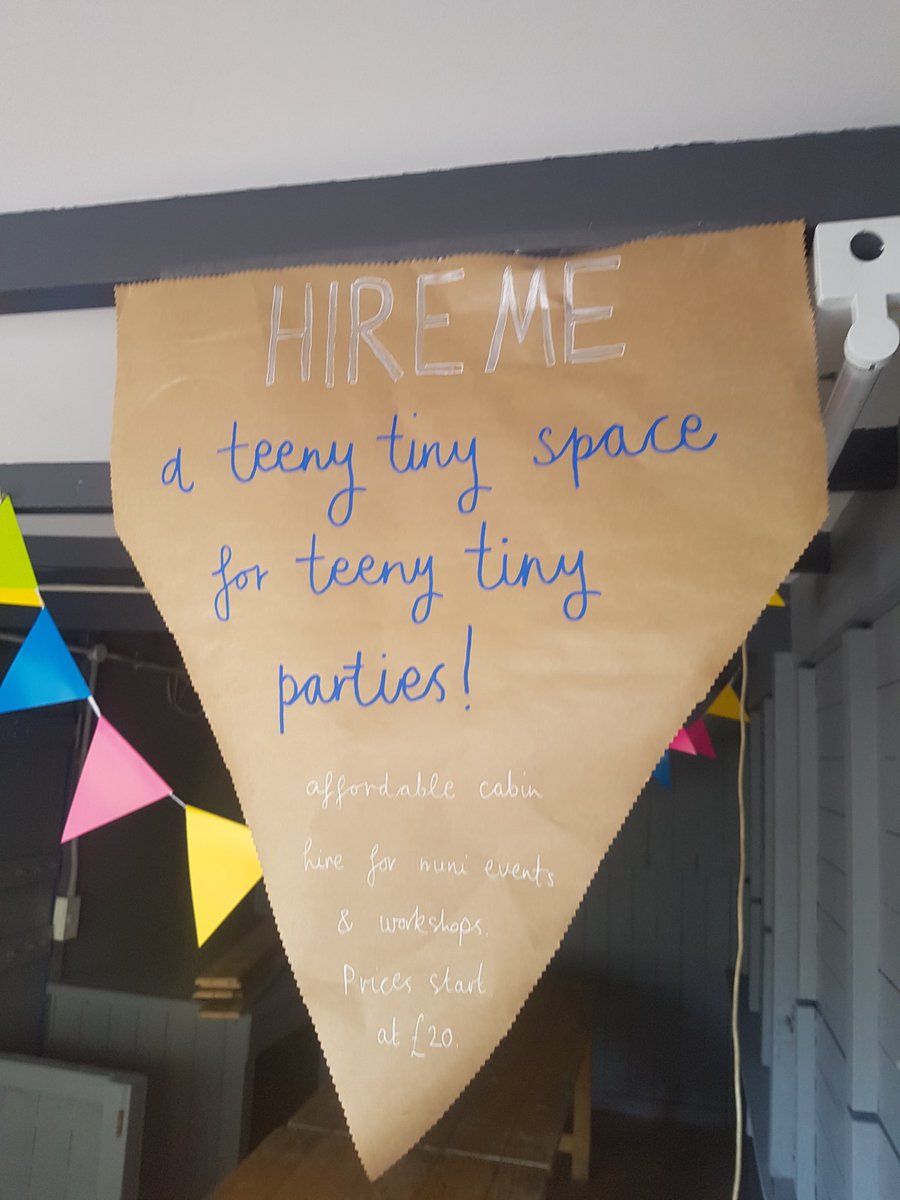 HIRE ME
a teeny tiny space
for teeny tiny
parties!
affordable cabin
hire for mini events
& workshops.
Prices start
at £20.